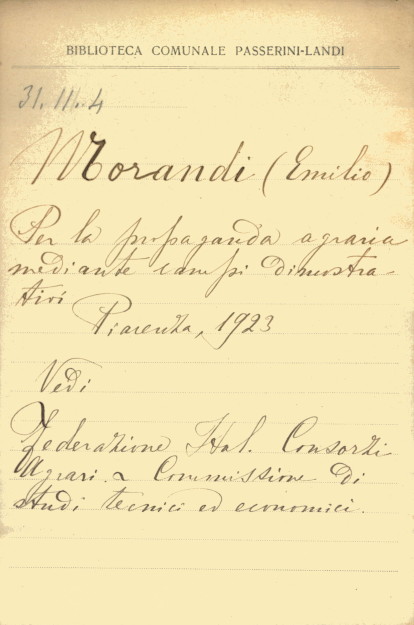 BIBLIOTECA COMUNALE PASSERINI-LANDI
31. III. 4
Morandi (Emilio)
Per la propaganda agraria
mediante campi dimostra-
tivi
Piacenza, 1923
Vedi
Federazione Ital. Consorzi
Agrari. Commissione di
studi tecnici ed economici.